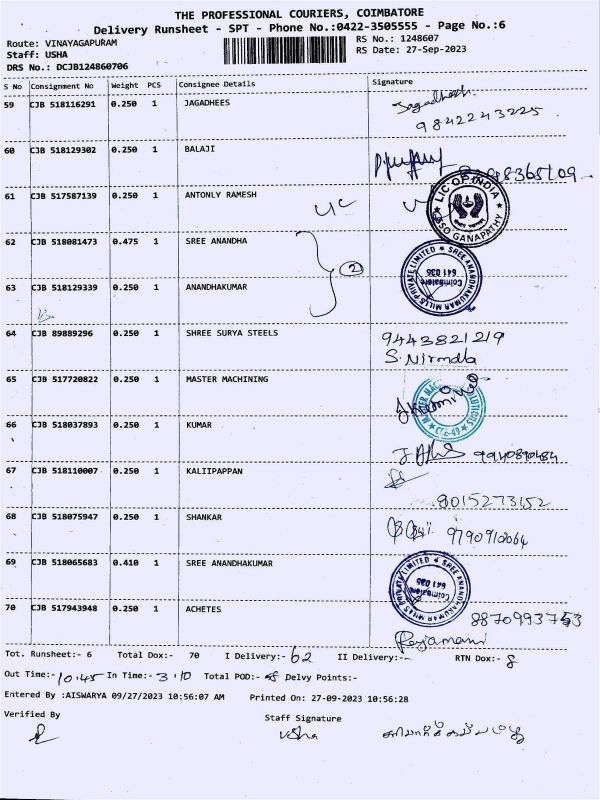 THE PROFESSIONAL COURIERS, COIMBATORE
Delivery Runsheet - SPT - Phone No.:0422-3505555 - Page No.:6
Route: VINAYAGAPURAM
Staff: USHA
DRS No.: DCJB124860706
RS No.: 1248607
RS Date: 27-Sep-2023
S No Consignment No Weight PCS Consignee Details Signature
59 CJB 518116291 0.250 1 JAGADHEES Jagadhesh
9842243225
60 CJB 518129302 0.250 1 BALAJI
61 CJB 517587139 0.250 1 ANTONLY RAMESH
LIC OF INDIA
SSO GANAPATHY
62 CJB 518081473 0.475 1 SREE ANANDHA
2
SREE ANANDHAKUMAR MILLS PRIVATE LIMITED
Coimbatore
641 035
63 CJB 518129339 0.250 1 ANANDHAKUMAR
64 CJB 89889296 0.250 1 SHREE SURYA STEELS 9443821219
S. Nirmala
65 CJB 517720822 0.250 1 MASTER MACHINING
66 CJB 518037893 0.250 1 KUMAR
67 CJB 518110007 0.250 1 KALIIPAPPAN
8015273152
68 CJB 518075947 0.250 1 SHANKAR 9790910064
69 CJB 518065683 0.410 1 SREE ANANDHAKUMAR
SREE ANANDHAKUMAR MILLS PRIVATE LIMITED
Coimbatore
641 035
70 CJB 517943948 0.250 1 ACHETES
Rajamani
Tot. Runsheet:- 6 Total Dox:- 70 I Delivery:- 62 II Delivery:-- RTN Dox:- 8
Out Time:- 10.45 In Time:- 3.10 Total POD:- Delvy Points:-
Entered By :AISWARYA 09/27/2023 10:56:07 AM Printed On: 27-09-2023 10:56:28
Verified By
Staff Signature
Usha